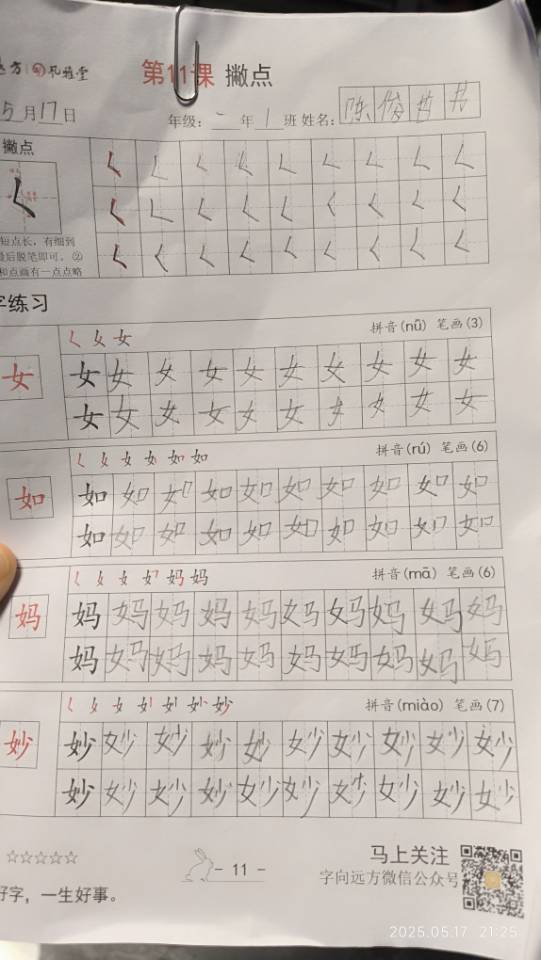 第11课 撇点
5月17日 年级: 二 年 1 班 姓名: 陈俊哲
撇点
短点长，有细到
最后脱笔即可。②
和点画有一点点略
字练习
拼音(nǚ) 笔画(3)
女 女 女 女 女 女 女 女 女 女 女
女 女 女 女 女 女 女 女 女 女
如 如 拼音(rú) 笔画(6)
如 如 如 如 如 如 如 如 如 如 如
如 如 如 如 如 如 如 如 如 如
妈 妈 拼音(mā) 笔画(6)
妈 妈 妈 妈 妈 妈 妈 妈 妈 妈 妈
妈 妈 妈 妈 妈 妈 妈 妈 妈 妈
妙 拼音(miào) 笔画(7)
妙 妙 妙 妙 妙 妙 妙 妙 妙 妙 妙
妙 妙 妙 妙 妙 妙 妙 妙 妙 妙
☆☆☆☆☆
- 11 -
马上关注
字向远方微信公众号
好字，一生好事。
2025.05.17 21:25